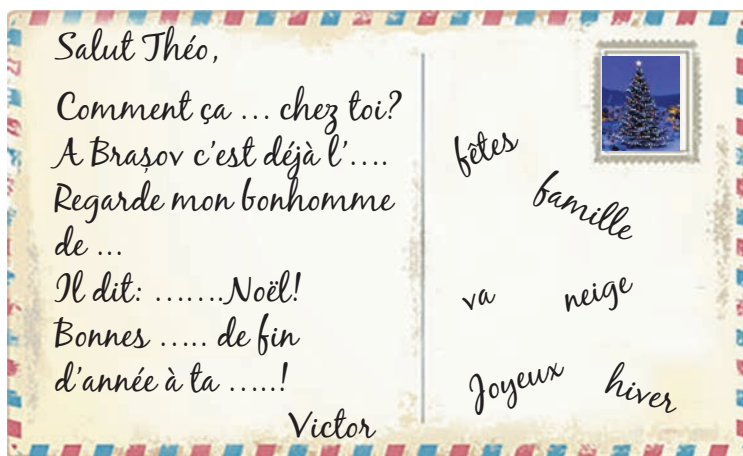 Salut Théo,
Comment ça ... chez toi?
A Brașov c'est déjà l'....
Regarde mon bonhomme
de ...
Il dit: .......Noël!
Bonnes ..... de fin
d'année à ta .....!
Victor
fêtes
famille
va
neige
Joyeux
hiver